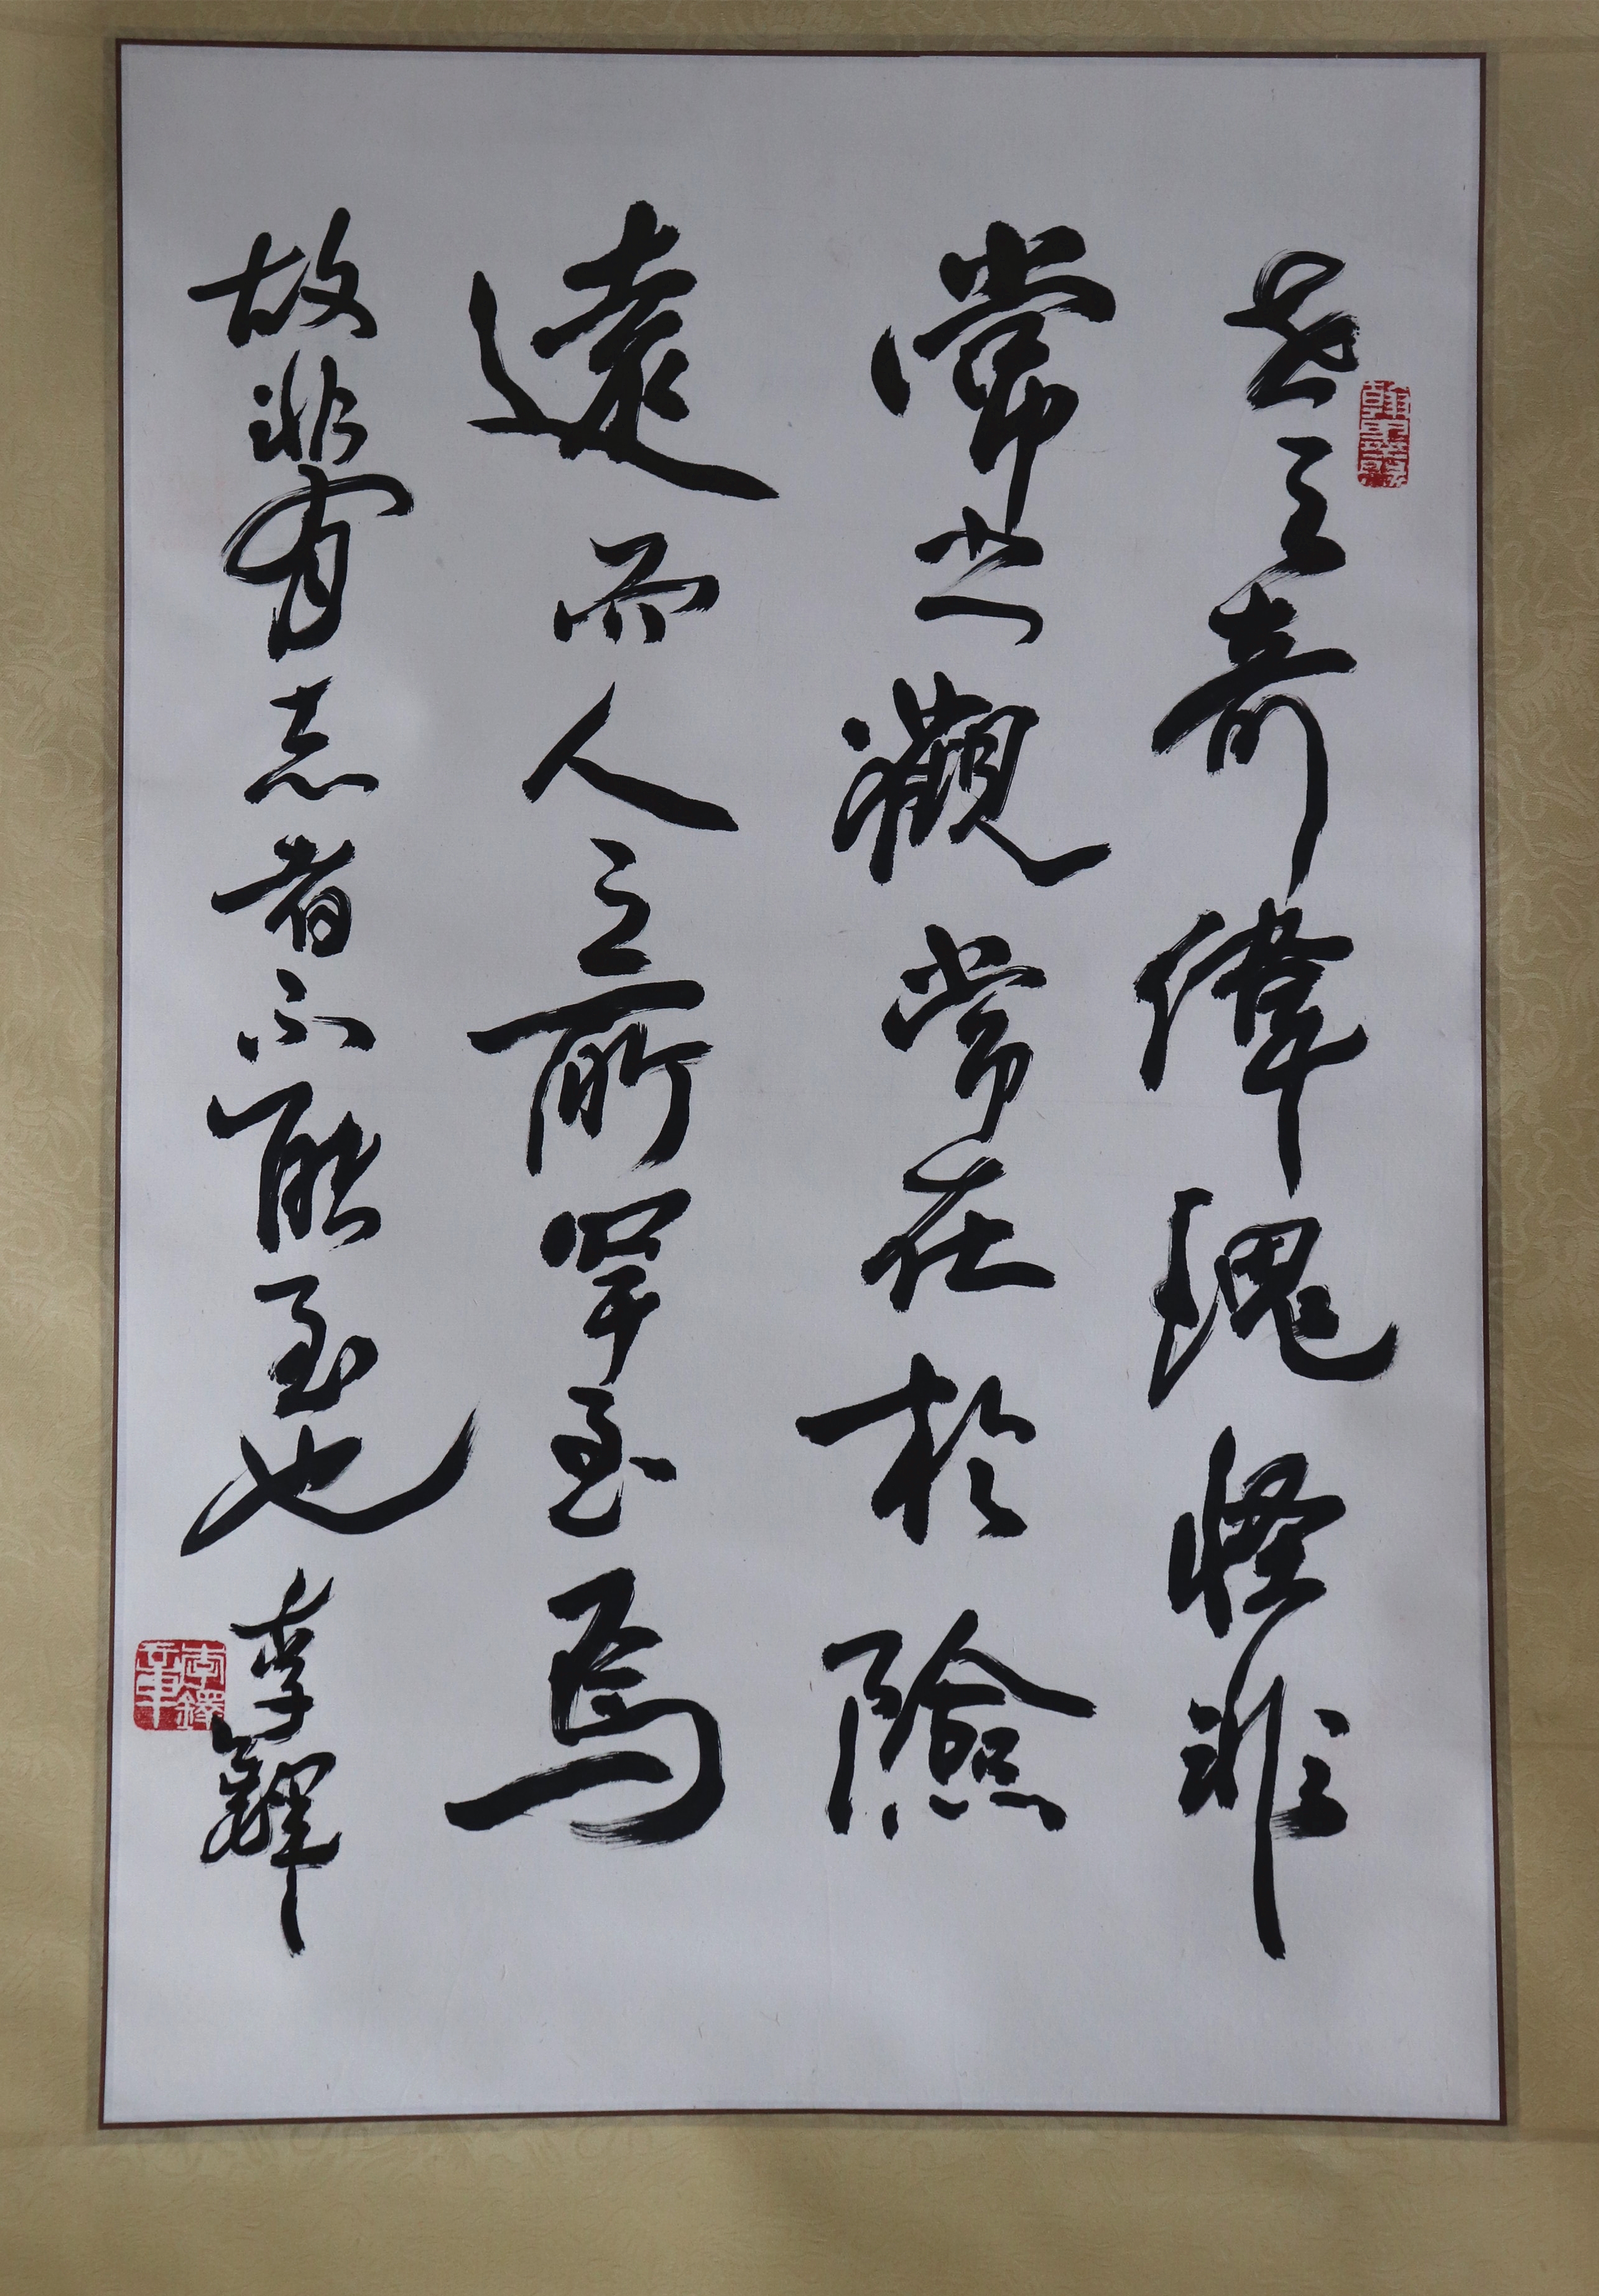 世之奇偉瑰怪非
常之觀常在於險
遠而人之所罕至焉
故非有志者不能至也
李鐸
翰墨緣
李鐸之章